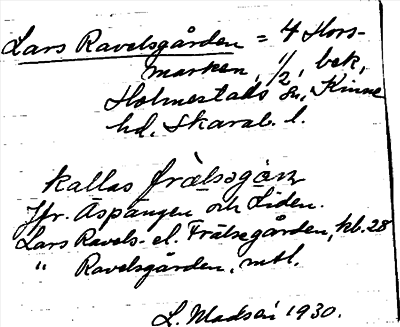 Lars Ravelsgården = 4 Hors-
marken, 1/2, bek,
Holmestads sn, Kinne
hd, Skarab. l.
kallas frälsegården
Jfr. Aspängen och Liden.
Lars Ravels- el. Frälsegården, kb. 28
" Ravelsgården, mtl.
L. Madsén 1930.